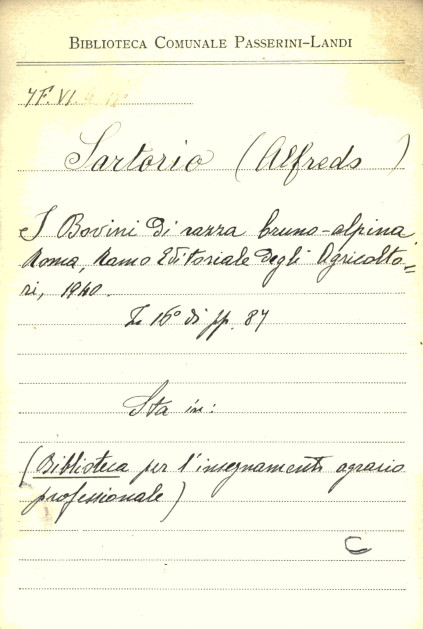 BIBLIOTECA COMUNALE PASSERINI-LANDI
7F.VI.
Sartorio (Alfredo)
I Bovini di razza bruno-alpina
Roma, Ramo Editoriale degli Agricolto=
ri, 1940.
In 16° di pp. 87
Sta in:
(Biblioteca per l'insegnamento agrario
professionale)
C